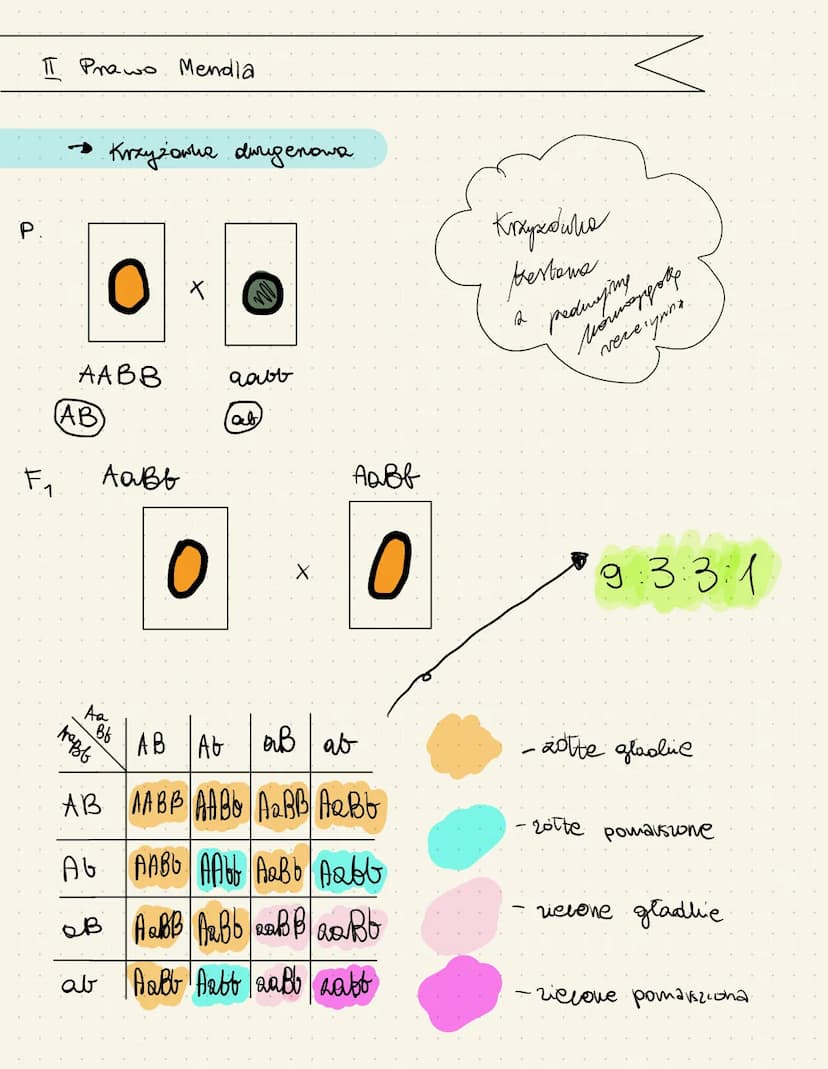 II Prawo Mendla
→ Krzyżówka dwugenowa
Krzyżówka
testowa
z podwójną
homozygotą
recesywną
P.
x
AABB aabb
AB ab
F1 AaBb AaBb
x
9:3:3:1
AaBb Aa Bb AB Ab aB ab
AB AABB AABb AaBB AaBb
Ab AABb AAbb AaBb Aabb
aB AaBB AaBb aaBB aaBb
ab AaBb Aabb aaBb aabb
- żółte gładkie
- żółte pomarszone
- zielone gładkie
- zielone pomarszczona